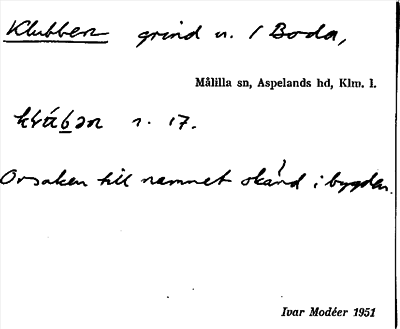 Klubben grind n. / Boda,
Målilla sn, Aspelands hd, Klm. l.
r. 17.
Orsaken till namnet okänd i bygden.
Ivar Modéer 1951